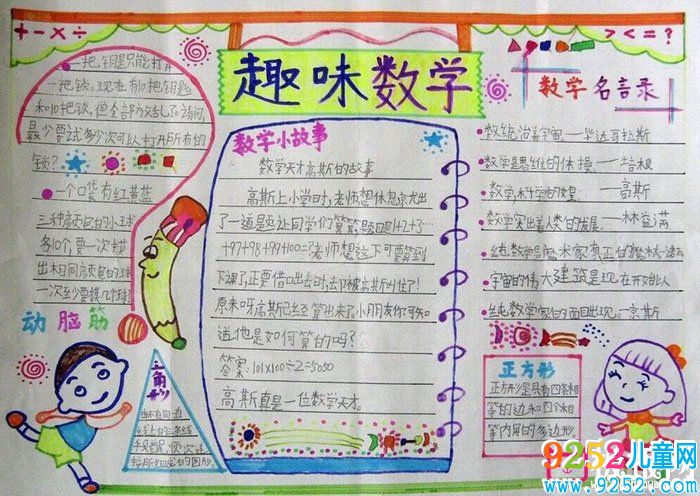 + - × ÷
趣味数学
> < = ?
一把钥匙只能打开
一把锁。现在有10把钥匙
和10把锁,但全部
最少要试多少次可以打开所有的
锁?
一个口袋有红黄蓝
三种颜色的小球
各10个,要一次摸
出
一次至少要摸几个球
动脑筋
数学小故事
数学天才高斯的故事
高斯上小学时,老师想休息
了一道题让同学们算算,题目是1+2+3…
+97+98+99+100=?老师想这下可要算到
下课了,正要借口出去时,却被高斯叫住了!
原来呀高斯已经算出来了小朋友你可知
道他是如何算的吗?
答案:101×100÷2=5050
高斯真是一位数学天才。
数学名言录
数统治着宇宙——毕达哥拉斯
数学是思维的体操——培根
——高斯
纯数学是魔术家真正的魔杖
宇宙的伟大建筑是现在开始以
纯数学家的面目出现了——京斯
三角形
由不在同一直
线上的三条线
段首尾顺次连
正方形
正方形是具有四条相
等的边和四个相
等内角的多边形
9252儿童网
www.9252.com